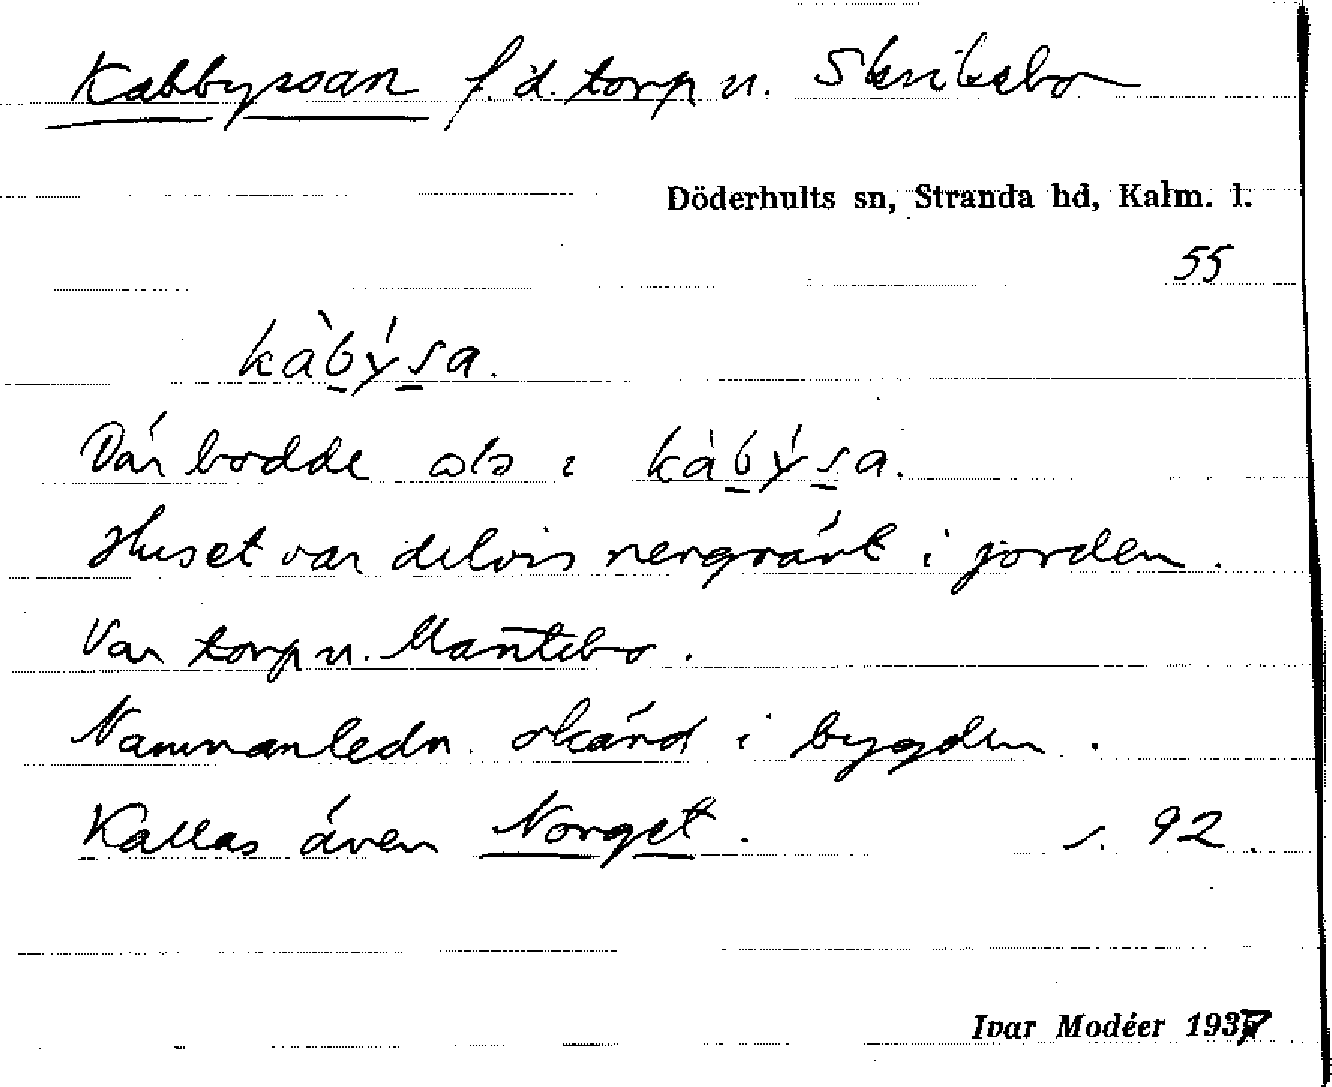 Kabbysoan f.d. torp u. Skrikebo
Döderhults sn, Stranda hd, Kalm. l.
55
kàbýsa.
Där bodde i kàbýsa.
Huset var delvis nergrävt i jorden.
Var torp u. Mantebo.
Namnanledn. okänd i bygden.
Kallas även Norget. s. 92.
Ivar Modéer 1937